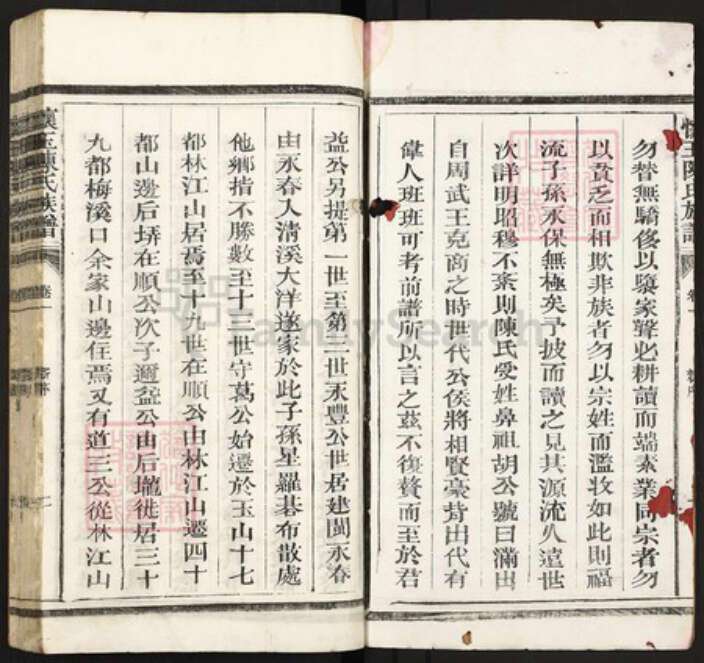 勿替無驕侈以隳家聲必耕讀而端素業同宗者勿
以貧乏而相欺非族者勿以宗姓而濫收如此則福
流子孫永保無極矣予披而讀之見其源流久遠世
次詳明昭穆不紊則陳氏受姓鼻祖胡公號曰滿出
自周武王克商之時世代公侯將相賢豪荐出代有
偉人班班可考前譜所以言之茲不復贅而至於君
益公另提第一世至第二世永豐公世居建閩永春
由永春入清溪大洋遂家於此子孫星羅碁布散處
他鄉指不勝數至十三世守葛公始遷於玉山十七
都林江山居焉至十九世在順公由林江山遷四十
都山邊后塝在順公次子遁盆公由后壠徙居三十
九都梅溪口余家山邊住焉又有道三公從林江山
懷玉陳氏族譜
卷一
FamilySearch